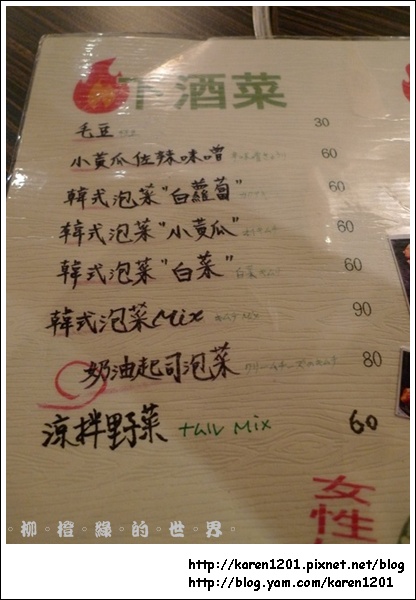 下酒菜
毛豆 30
小黃瓜佐辣味噌 60
韓式泡菜"白蘿蔔" 60
韓式泡菜"小黃瓜" 60
韓式泡菜"白菜" 60
韓式泡菜Mix 90
奶油起司泡菜 80
涼拌野菜 ナムル Mix 60
女性
。柳。橙。綠。的。世。界。
http://karen1201.pixnet.net/blog
http://blog.yam.com/karen1201